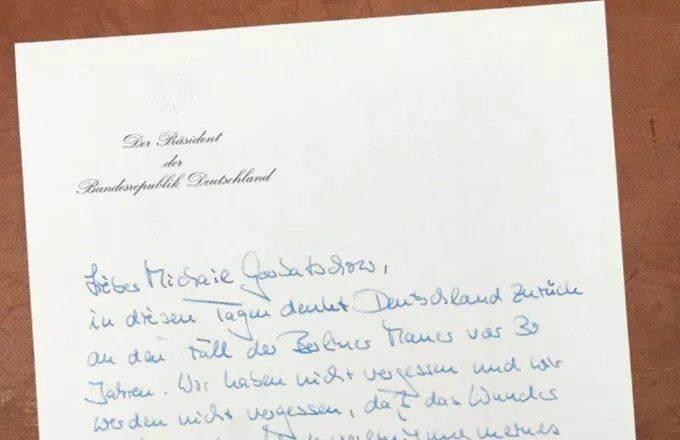 Der Präsident
der
Bundesrepublik Deutschland
Lieber Michail Gorbatschow,
in diesen Tagen denkt Deutschland zurück
an den Fall der Berliner Mauer vor 30
Jahren. Wir haben nicht vergessen und wir
werden nicht vergessen, daß das Wunder